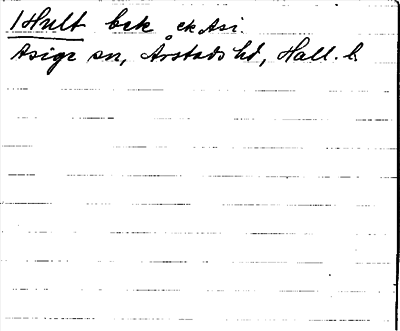 1 Hult bek ek Asi.
Asige sn, Årstads hd, Hall. l.